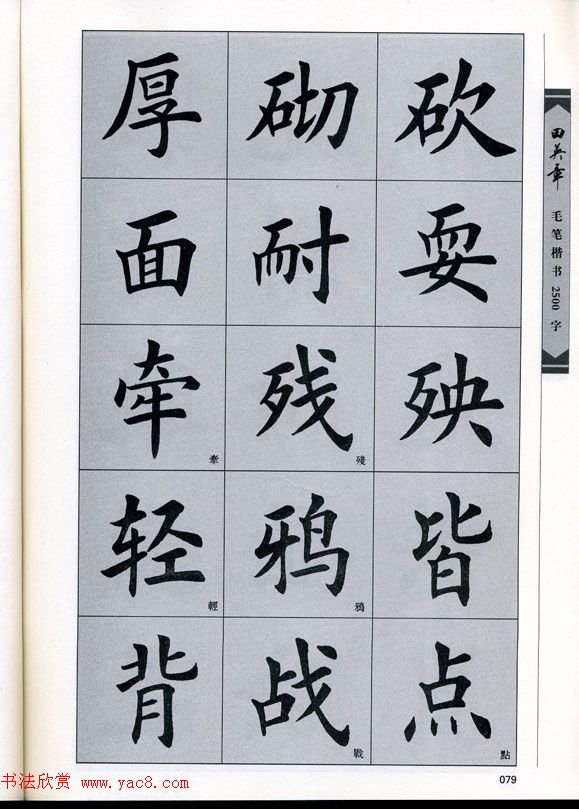 厚 砌 砍
面 耐 耍
牵 残 殃
牽 殘
轻 鸦 皆
輕 鴉
背 战 点
戰 點
田英章
毛笔楷书2500字
079
书法欣赏 www.yac8.com